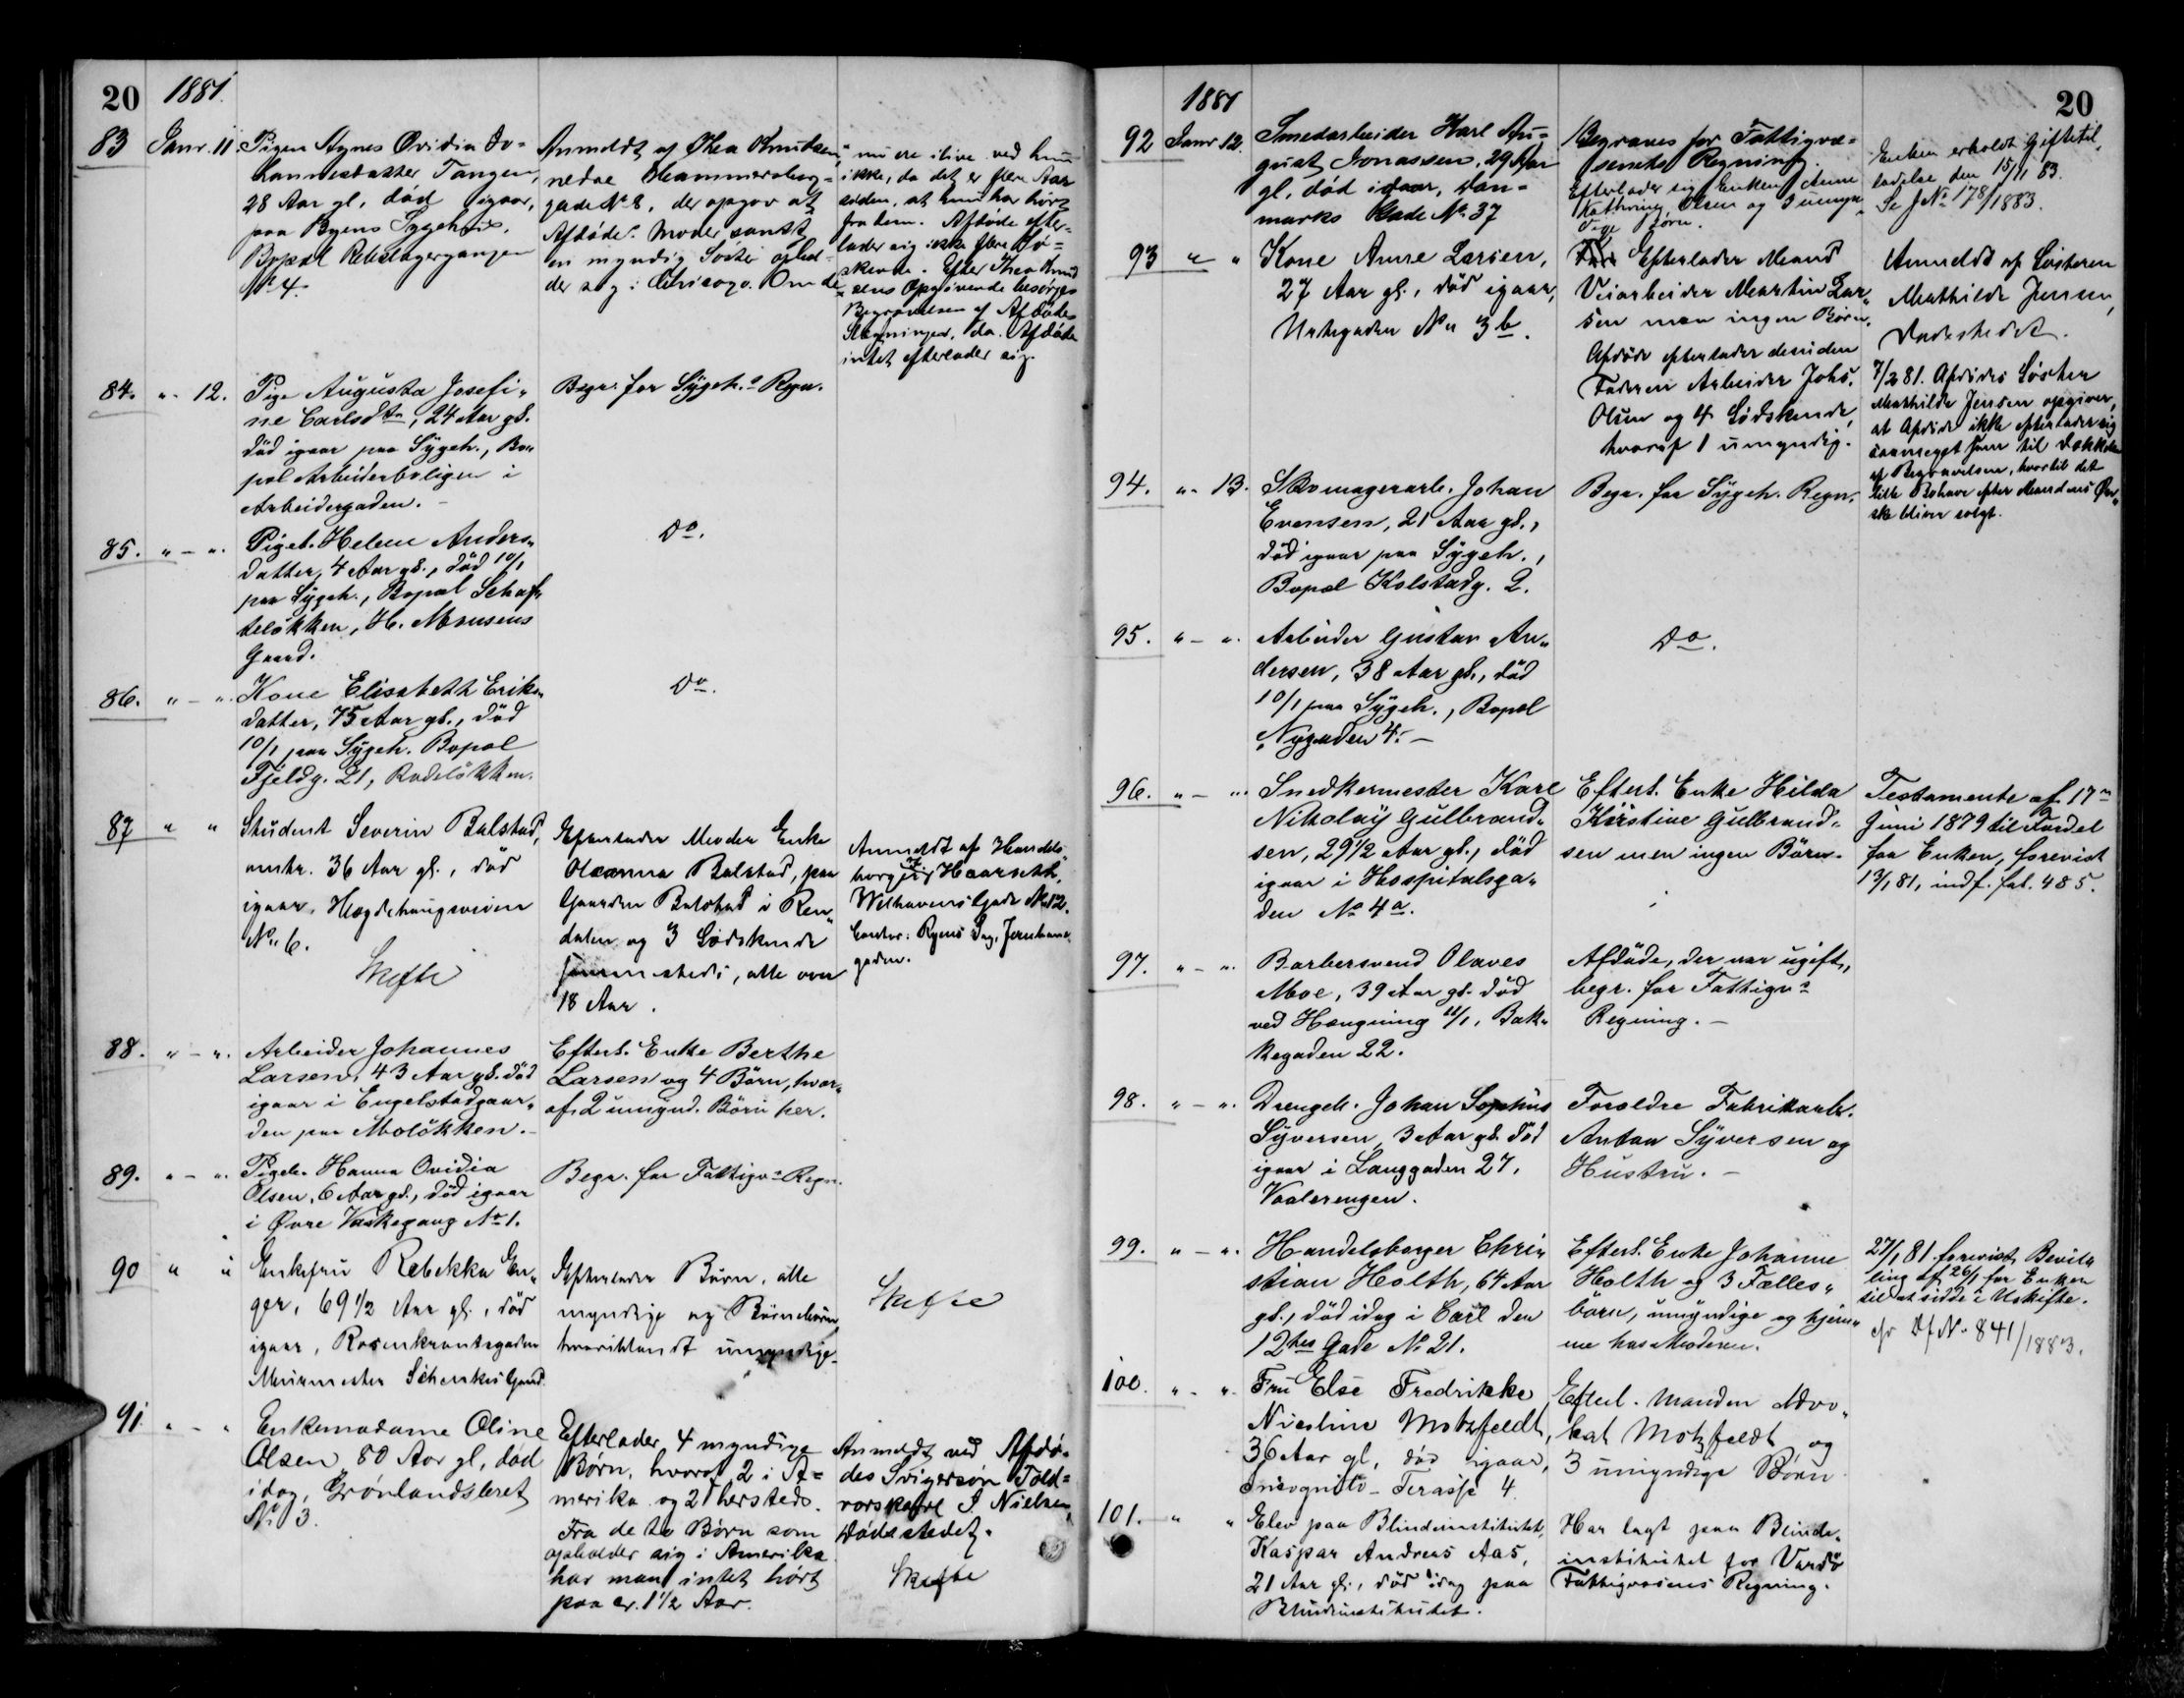 20 1881
83 Janr. 11. Pigen Agnes Ovidia Jo-
hannesdatter Tangen,
28 Aar gl, død igaar,
paa Byens Sygehus.
Bopæl Rebslagergangen
No 4.
Anmeldt af Thea Knutsen,
nedre Hammersborg-
gade No 8, der opgav at
Afdødes Moder samt
en myndig Søster ophol-
der sig i Chicago. Om de
nu ere ilive ved hun
ikke, da det er flere Aar
siden, at hun har hørt
fra dem. Afdøde efter-
lader sig ikke flere Sø-
skende. Efter Thea Knud
sens Opgivende besørges
Begravelsen af Afdødes
Slægtninger, da Afdøde
intet efterlader sig.
84. " - 12. Pige Augusta Josefi-
ne Carlsdtr, 24 Aar gl.
død igaar paa Sygeh., Bo-
pæl Arbeiderboligen i
Arbeidergaden. -
Begr. for Sygeh.s Regn.
85. " - ". Pigeb. Helene Anders-
datter, 4 Aar gl., død 10/1
paa Sygeh., Bopæl Schaf-
teløkken, H. Monsens
Gaard.
Do.
86. " - ". Kone Elisabeth Eriks-
datter, 75 Aar gl., død
10/1 paa Sygeh. Bopæl
Fjeldg. 21, Rodeløkken.
Do.
87 " " Student Severin Balstad,
omtr. 36 Aar gl., død
igaar, Hægdehaugsveien
No 6.
Skifte
Efterlader Moder Enke
Oleanna Balstad, paa
Gaarden Balstad i Ren-
dalen og 3 Sødskende
sammesteds, alle over
18 Aar.
Anmeldt af Handels-
borger Haarseth,
Welhavens Gade No 12.
Contor: Ryens Sag, Jernbane-
gaden.
88. " - ". Arbeider Johannes
Larsen, 43 Aar gl. død
igaar i Engelstadgaar-
den paa Moløkken. -
Efterl. Enke Berthe
Larsen og 4 Børn, hvor-
af 2 umynd. Børn her.
89. " - ". Pigeb. Hanna Ovidia
Olsen, 6 Aar gl., død igaar
i Øvre Vaskegang No 1.
Begr. for Fattigv.s Regn.
90 " " Enkefru Rebekka En-
ger, 69 1/2 Aar gl., død
igaar, Rosenkrantzgaden
Murmester Schenkes Gaard
Efterlader Børn, alle
myndige og Børnebørn
hvoriblandt umyndige.
Skifte
91. " - " Enkemadame Oline
Olsen, 80 Aar gl, død
idag, Grønlandsleret
No 3.
Efterlader 4 myndige
Børn, hvoraf 2 i A-
merika og 2 hersteds.
Fra de to Børn som
opholder sig i Amerika
har man intet hørt
paa cr. 1 1/2 Aar.
Anmeldt ved Afdø-
des Svigersøn Told-
rorskarl J. Nielsen,
Dødsstedet.
Skifte
1881 20
92 Janr 12. Smedarbeider Karl Au-
gust Jonassen, 29 Aar
gl, død igaar, Dan-
marks Gade No 37
Begraves for Fattigvæ-
senets Regning.
Efterlader sig Enken Anne
Kathrine Olsen og 3 umyn-
dige Børn.
Enken erholdt Giftetil-
ladelse den 15/1 83.
Se J No 178/1883.
93 " " Kone Anne Larsen,
27 Aar gl., død igaar,
Urtegaden No 3b.
Efterlader Mand
Veiarbeider Martin Lar-
sen men ingen Børn.
Afdøde efterlader desuden
Faderen Arbeider Johs.
Olsen og 4 Sødskende,
hvoraf 1 umyndig.
Anmeldt af Søsteren
Mathilde Jensen,
Dødsstedet.
7/2 81. Afdødes Søster
Mathilde Jensen opgiver,
at Afdøde ikke efterlader sig
saameget som til Dækkelse
af Begravelsen, hvortil det
lille Bohave efter Mandens Øn-
ske bliver solgt.
94. " - 13. Skomagerarb. Johan
Evensen, 21 Aar gl.,
død igaar paa Sygeh.,
Bopæl Kolstadg. 2.
Begr. for Sygeh. Regn.
95. " - ". Arbeider Gustav An-
dersen, 38 Aar gl., død
10/1 paa Sygeh., Bopæl
Nygaden 4. -
Do.
96. " - ". Snedkermester Karl
Nikolay Gulbrand-
sen, 29 1/2 Aar gl., død
igaar i Hospitalsga-
den No 4a.
Efterl. Enke Hilda
Kirstine Gulbrand-
sen men ingen Børn.
Testamente af 17n
Juni 1879 til Fordel
for Enken, forevist
13/1 81, indf. fol. 485.
97. " - ". Barbersvend Olaves
Moe, 39 Aar gl. død
ved Hængning 11/1, Bak-
kegaden 22.
Afdøde, der var ugift,
begr. for Fattigv.s
Regning. -
98. " - ". Drengeb. Johan Sophus
Syversen, 3 Aar gl. død
igaar i Langgaden 27.
Vaalerengen.
Forældre Fabrikarb.
Anton Syversen og
Hustru. -
99. " - ". Handelsborger Chri-
stian Holth, 64 Aar
gl., død idag i Carl den
12tes Gade No 21.
Efterl. Enke Johanne
Holth og 3 Fælles-
børn, umyndige og hjem-
me hos Moderen.
27/1 81 forevist Bevil-
ling af 26/1 for Enken
til at sidde i Uskifte.
cfr Df No 841/1883.
100. " - ". Fru Else Fredrikke
Nicoline Motzfeldt,
36 Aar gl, død igaar,
Incognito-Terasse 4.
Efterl. Manden Advo-
kat Motzfeldt og
3 umyndige Børn
101. " " Elev paa Blindeinstitutet,
Kaspar Andreas Aas,
21 Aar gl., død idag paa
Blindeinstitutet.
Har lagt paa Blinde-
institutet for Vardø
Fattigvæsens Regning.